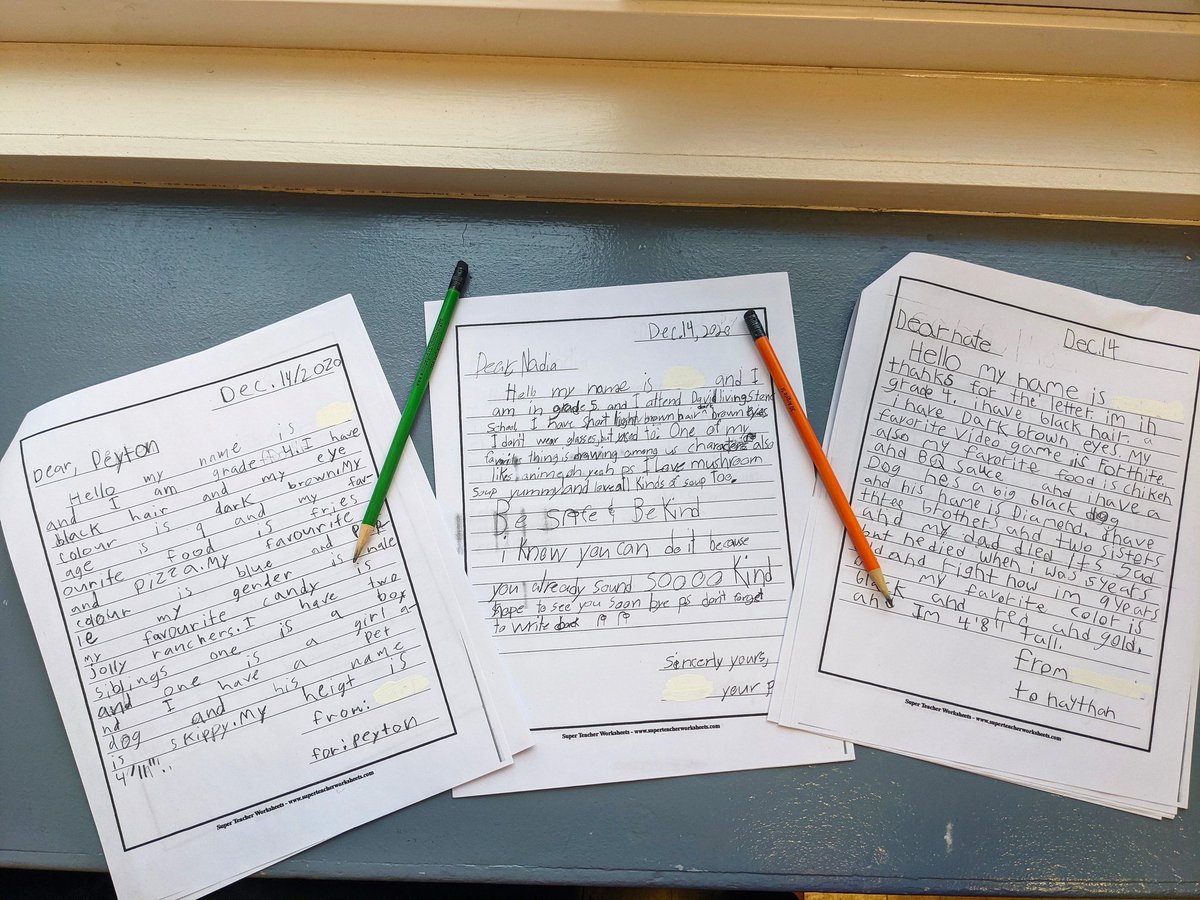 Dec. 14/2020
Dear, Peyton
Hello my name is
and I am grade 4. I have
black hair and my eye
colour is dark brown. My
age is 9 and my fav-
ourite food is fries
and pizza. My favourite
colour is blue and
my gender is male
my favourite candy is
jolly ranchers. I have two
siblings one is a boy
and one is a girl a-
nd I have a pet
dog and his name
is skippy. My heigt is
4'11"..
from:
for: peyton
Super Teacher Worksheets - www.superteacherworksheets.com
Dec. 14, 2020
Dear Nadia
Hello my name is and I
am in grade 5 and I attend David livingstone
School I have short light brown hair brown eyes
I don't wear glasses, but used to. One of my
favorites thing is drawing among us characters also
likes anime, oh yeah ps I love mushroom
soup yummy and love all kinds of soup too.
Be SAfe & Be Kind
i know you can do it because
you already sound soooo kind
hope to see you soon bye ps don't forget
to write back
sincerly yours,
your p
Super Teacher Worksheets - www.superteacherworksheets.com
Dear nate Dec. 14
Hello my name is
thanks for the letter. im in
grade 4. i have black hair. a
i have Dark brown eyes. My
favorite video game is Forthite.
also my favorite food is chikeh
and BQ sauce and i have a
Dog hes a big black dog
and his name is Diamond. I have
three brothers and two sisters
and my dad died Its sad
but he died when i was 5 years
old and right now im 9 years
my faforite color is
black and red and gold.
and Im 4'8" tall.
from
to haythan
Super Teacher Worksheets - www.superteacherworksheets.com